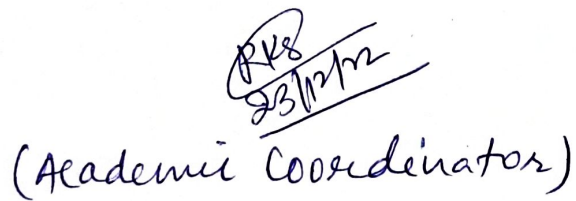 RKS
23/12/22
(Academic Coordinator)